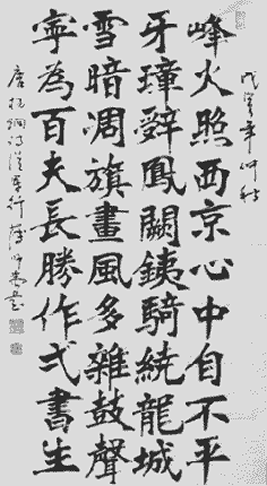 戊寅年仲秋
峰火照西京心中自不平
牙璋辭鳳闕銕騎繞龍城
雪暗凋旗畫風多雜鼓聲
寧為百夫長勝作弌書生
唐楊炯詩從軍行